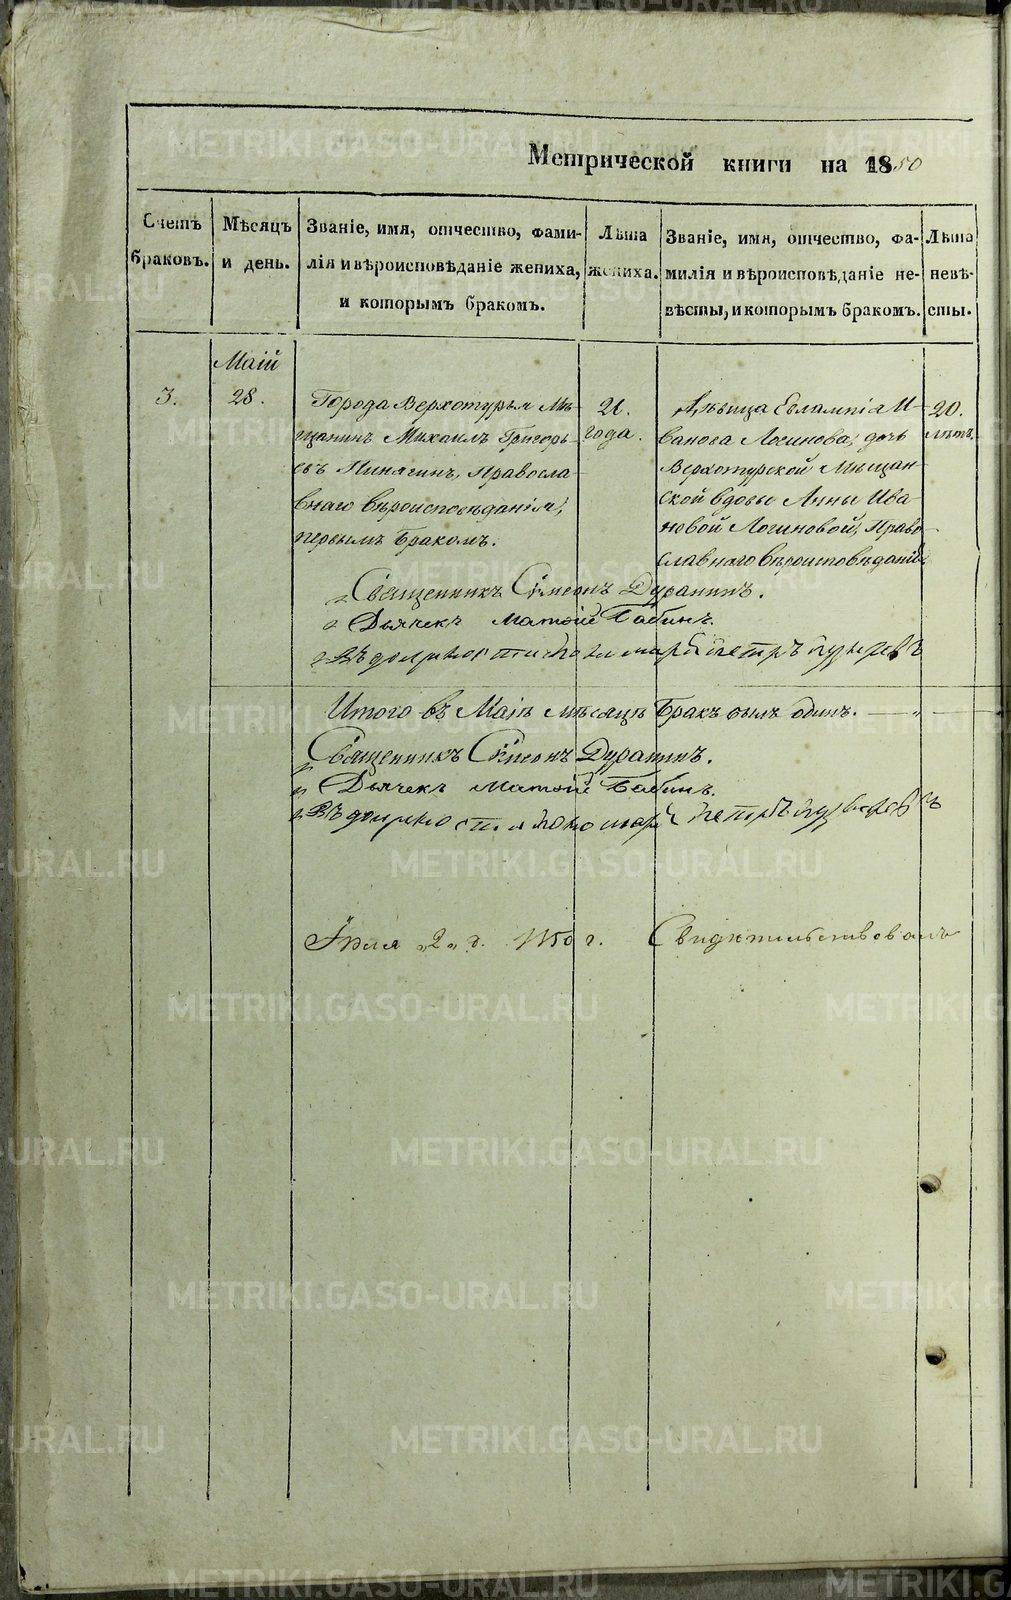 Метрической книги на 1850
Счетъ браковъ.
Мѣсяцъ и день.
Званіе, имя, отчество, фами-
лія и вѣроисповѣданіе жениха,
и которымъ бракомъ.
Лѣта жениха.
Званіе, имя, отчество, фа-
милія и вѣроисповѣданіе не-
вѣсты, и которымъ бракомъ.
Лѣта невѣ-
сты.
3.
Маій
28.
Города Верхотурья Мѣ-
щанинъ Михаилъ Григорь-
евъ Пинягинъ, Правосла-
внаго вѣроисповѣданія,
первымъ бракомъ.
21.
года.
Дѣвица Евлампія И-
ванова Логинова, дочь
Верхотурской Мѣщан-
ской вдовы Анны Ива
новой Логиновой, Право-
славнаго вѣроисповѣданія
20.
лѣтъ.
Священникъ Симеонъ Дуранинъ.
Дьячекъ Матѳій Бабинъ.
Въ должности Пономаря Петръ
Итого въ Маіѣ мѣсяцѣ Бракъ былъ одинъ.
Священникъ Симеонъ Дуранинъ.
Дьячекъ Матѳій Бабинъ.
Въ должности Пономаря Петръ
Іюля „2„ д. 1850 г. Свидѣтельствовалъ
METRIKI.GASO-URAL.RU